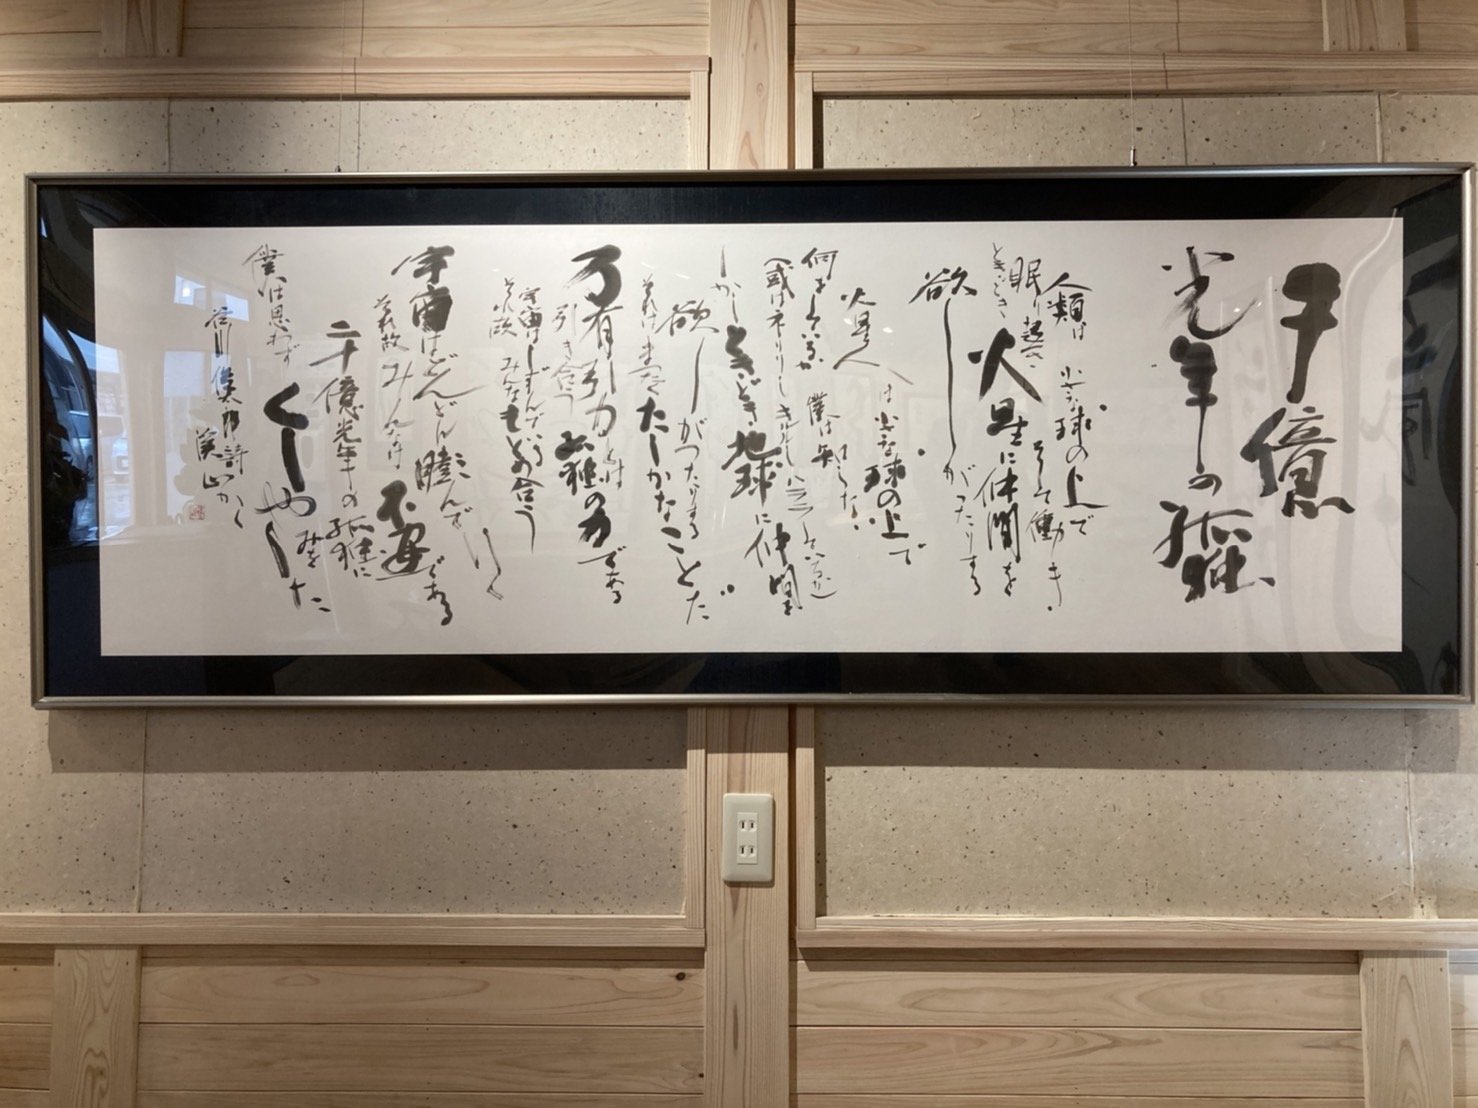 二十億
光年の
孤独
人類は小さな球の上で
眠り起きそして働き
ときどき火星に仲間を
欲しがったりする
火星人は小さな球の上で
何をしてるか 僕は知らない
(或はネリリし キルルし ハララしているか)
しかしときどき地球に仲間を
欲しがったりする
それはまったくたしかなことだ
万有引力とは
引き合う孤独の力である
宇宙はひずんでいる
それ故みんなはもとめ合う
宇宙はどんどん膨んでゆく
それ故みんなは不安である
二十億光年の孤独に
僕は思わずくしゃみをした
谷川俊太郎詩